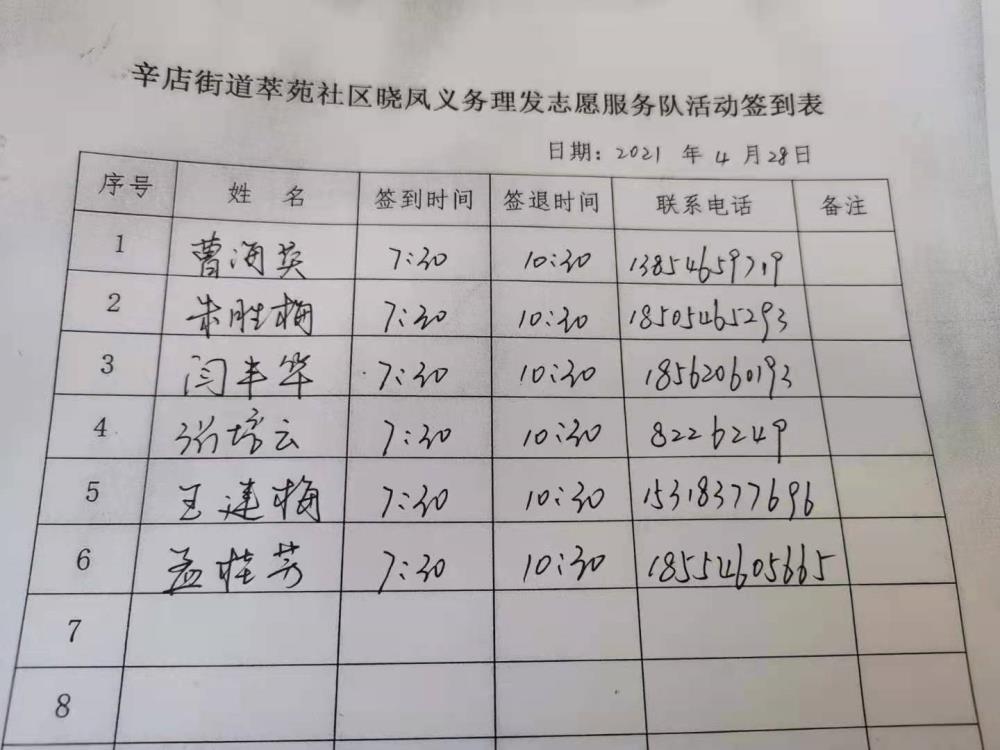 辛店街道萃苑社区晓凤义务理发志愿服务队活动签到表
日期：2021 年 4 月 28日
序号 姓 名 签到时间 签退时间 联系电话 备注
1 曹海英 7:30 10:30 13854659719
2 朱胜梅 7:30 10:30 18505465293
3 闫丰华 7:30 10:30 18562060193
4 张培云 7:30 10:30 8226249
5 王建梅 7:30 10:30 15318377696
6 孟桂芳 7:30 10:30 18554605665
7
8